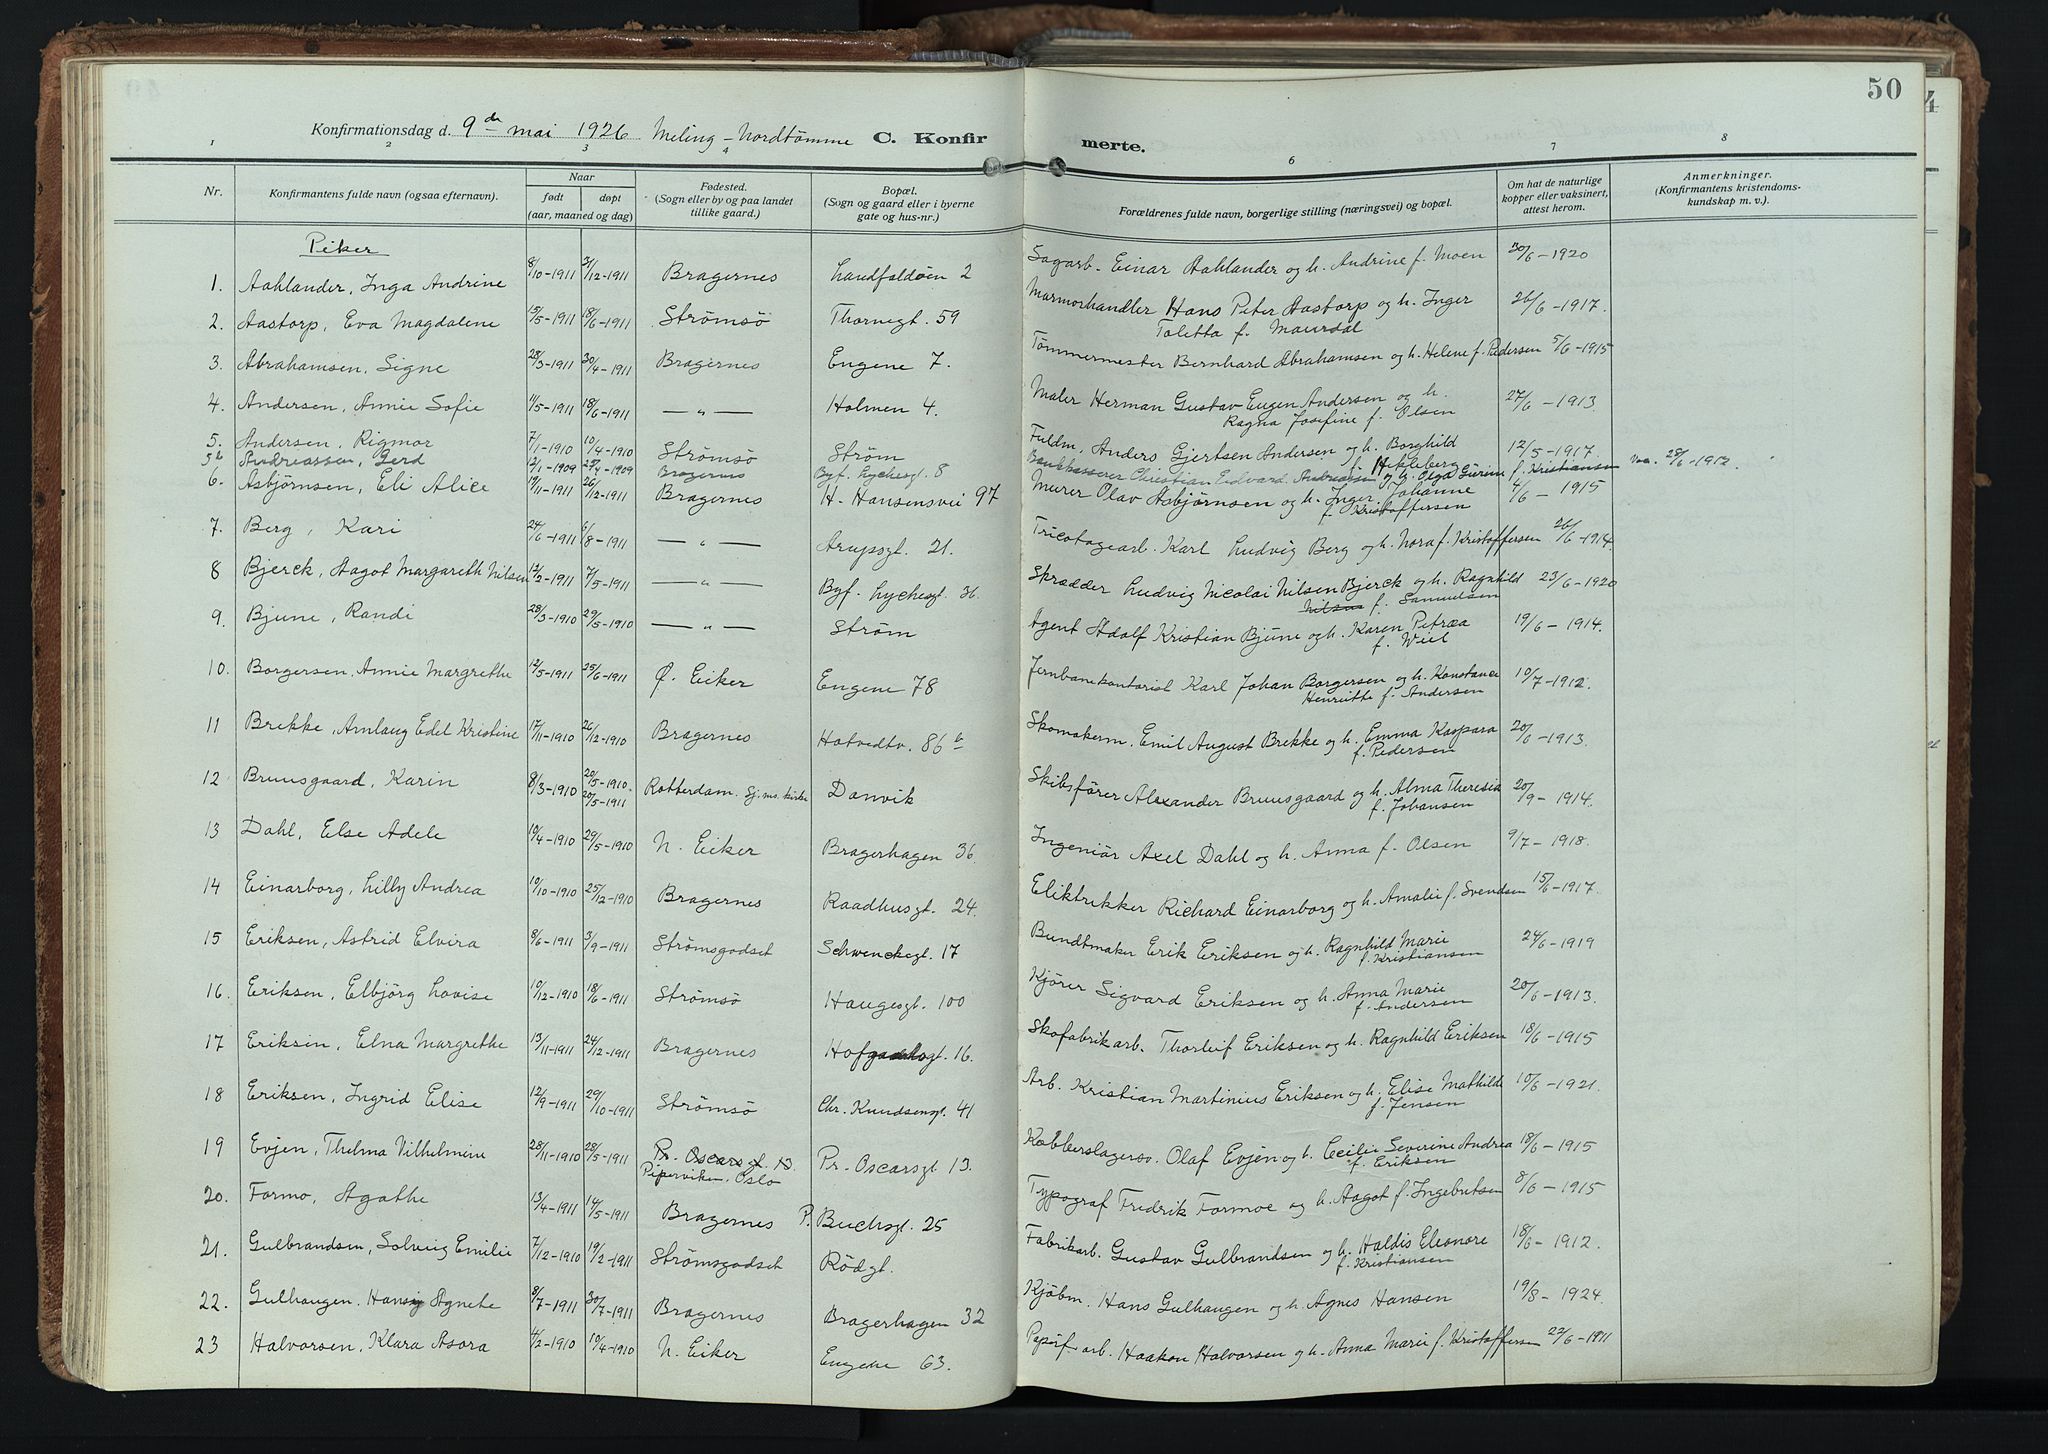 50
4
Konfirmationsdag d. 9de mai 1926 Meling - Nordtømme C. Konfirmerte.
1 2 3 4 6 7 8
Nr. Konfirmantens fulde navn (ogsaa efternavn). Naar født døpt (aar, maaned og dag) Fødested. (Sogn eller by og paa landet tillike gaard.) Bopæl. (Sogn og gaard eller i byerne gate og hus-nr.) Forældrenes fulde navn, borgerlige stilling (næringsvei) og bopæl. Om hat de naturlige kopper eller vaksinert, attest herom. Anmerkninger. (Konfirmantens kristendomskundskap m. v.).
Piker
1. Aahlander, Inga Andrine 8/10-1911 /12-1911 Bragernes Landfaldøen 2 Sagarb. Einar Aahlander og h. Andrine f. Moen 30/6-1920
2. Aastorp, Eva Magdalene 15/5-1911 18/6-1911 Strømsø Thornegt. 59 Marmorhandler Hans Peter Aastorp og h. Inger 26/6-1917.
Toletta f. Maurdal
3. Abrahamsen, Signe 28/3-1911 30/4-1911 Bragernes Engene 7. Tømmermester Bernhard Abrahamsen og h. Helene f. Pedersen 5/6-1915
4. Andersen, Annie Sofie 11/5-1911 18/6-1911 — " — Holmen 4. Maler Herman Gustav Eugen Andersen og h. 27/6-1913.
Ragna Josefine f. Olsen
5. Andersen, Rigmor 7/1-1910 10/4-1910 Strømsø Strøm Fuldm. Anders Gjertsen Andersen og h. Borghild 12/5-1917.
f. Hekleberg
5b Andreassen, Gerd 12/1-1909 27/4-1909 Bragernes Bgf. Lychesgt. 8 Bankkasserer Christian Edvard Andreassen og h. Olga f. Kristiansen 28/6-1912
6. Asbjørnsen, Eli Alice 19/11-1911 26/12-1911 Bragernes H. Hansensvei 97 Murer Olav Asbjørnsen og h. Inger Johanne 4/6-1915
f. Kristoffersen
7. Berg, Kari 24/6-1911 6/8-1911 — " — Arupsgt. 21. Tricotagearb. Karl Ludvig Berg og h. Nora f. Kristoffersen 26/6-1914.
8 Bjerck, Aagot Margareth Nilsen 12/2-1911 7/5-1911 — " — Bgf. Lychesgt. 36. Skrædder Ludvig Nicolai Nilsen Bjerck og h. Ragnhild 23/6-1920
Nilsen f. Samuelsen
9. Bjune, Randi 28/3-1910 29/5-1910 — " — Strøm Agent Adolf Kristian Bjune og h. Karen Petræa 19/6-1914.
f. Wiel
10. Borgersen, Annie Margrethe 12/5-1911 25/6-1911 Ø. Eiker Engene 78 Jernbanekontorist Karl Johan Borgersen og h. Konstance 10/7-1912.
Henriette f. Andersen
11 Brekke, Arnlaug Edel Kristine 17/11-1910 26/12-1910 Bragernes Hotvedtv. 86b Skomakerm. Emil August Brekke og h. Emma Kaspara 20/6-1913.
f. Pedersen
12 Bruusgaard, Karin 8/3-1910 20/5-1910. 20/5-1911 Rotterdam. Sj. ms. kirke Danvik Skibsfører Alexander Bruusgaard og h. Alma Theresia 20/9-1914.
f. Johansen
13 Dahl, Else Adele 10/4-1910 29/5-1910 N. Eiker Bragerhagen 36. Ingeniør Axel Dahl og h. Anna f. Olsen 9/7-1918.
14 Einarborg, Lilly Andrea 10/10-1910 25/12-1910 Bragernes Raadhusgt. 24. Eliktrikker Richard Einarborg og h. Amalie f. Svendsen 15/6-1917.
15 Eriksen, Astrid Elvira 8/6-1911 3/9-1911 Strømsgodset Schwenckegt. 17 Bundtmaker Erik Eriksen og h. Ragnhild Marie 24/6-1919
f. Kristiansen
16. Eriksen, Elbjörg Lovise 10/12-1910 18/6-1911 Strømsø Haugesgt. 100 Kjører Sigvard Eriksen og h. Anna Marie 20/6-1913.
f. Andersen
17 Eriksen, Elna Margrethe 13/11-1911 24/12-1911 Bragernes Hofgaardsgt. 16. Skofabrikarb. Thorleif Eriksen og h. Ragnhild Eriksen 18/6-1915
18 Eriksen, Ingrid Elise 12/9-1911 29/10-1911 Strømsø Chr. Knudsensgt. 41 Arb. Kristian Martinius Eriksen og h. Elise Mathilde 10/6-1921.
f. Jensen
19 Evjen, Thelma Vilhelmine 28/11-1910 28/5-1911 Pr. Oscarsgt. 13. Pr. Oscarsgt 13. Kobberslagersv. Olaf Evjen og h. Cecilie Severine Andrea 18/6-1915
Piperviken, Oslo f. Eriksen
20. Formo, Agathe 13/4-1911 14/5-1911 Bragernes P. Buchsgt. 25 Typograf Fredrik Formoe og h. Aagot f. Ingebretsen 8/6-1915
21. Gulbrandsen, Solveig Emilie 7/12-1910 19/2-1911 Strømsgodset Rödgt. Fabrikarb. Gustav Gulbrandsen og h. Haldis Eleonore 18/6-1912.
f. Kristiansen
22. Gulhaugen, Hansy Agnete 8/7-1911 30/7-1911 Bragernes Bragerhagen 32 Kjøbm. Hans Gulhaugen og h. Agnes Hansen 19/8-1924
23 Halvorsen, Klara Asora 4/2-1910 10/4-1910 N. Eiker Engene 63. Papirf. arb. Haakon Halvorsen og h. Anna Marie f. Kristoffersen 22/6-1911